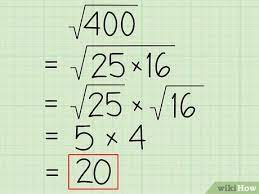 √400
= √25×16
= √25 × √16
= 5 × 4
= 20
wikiHow